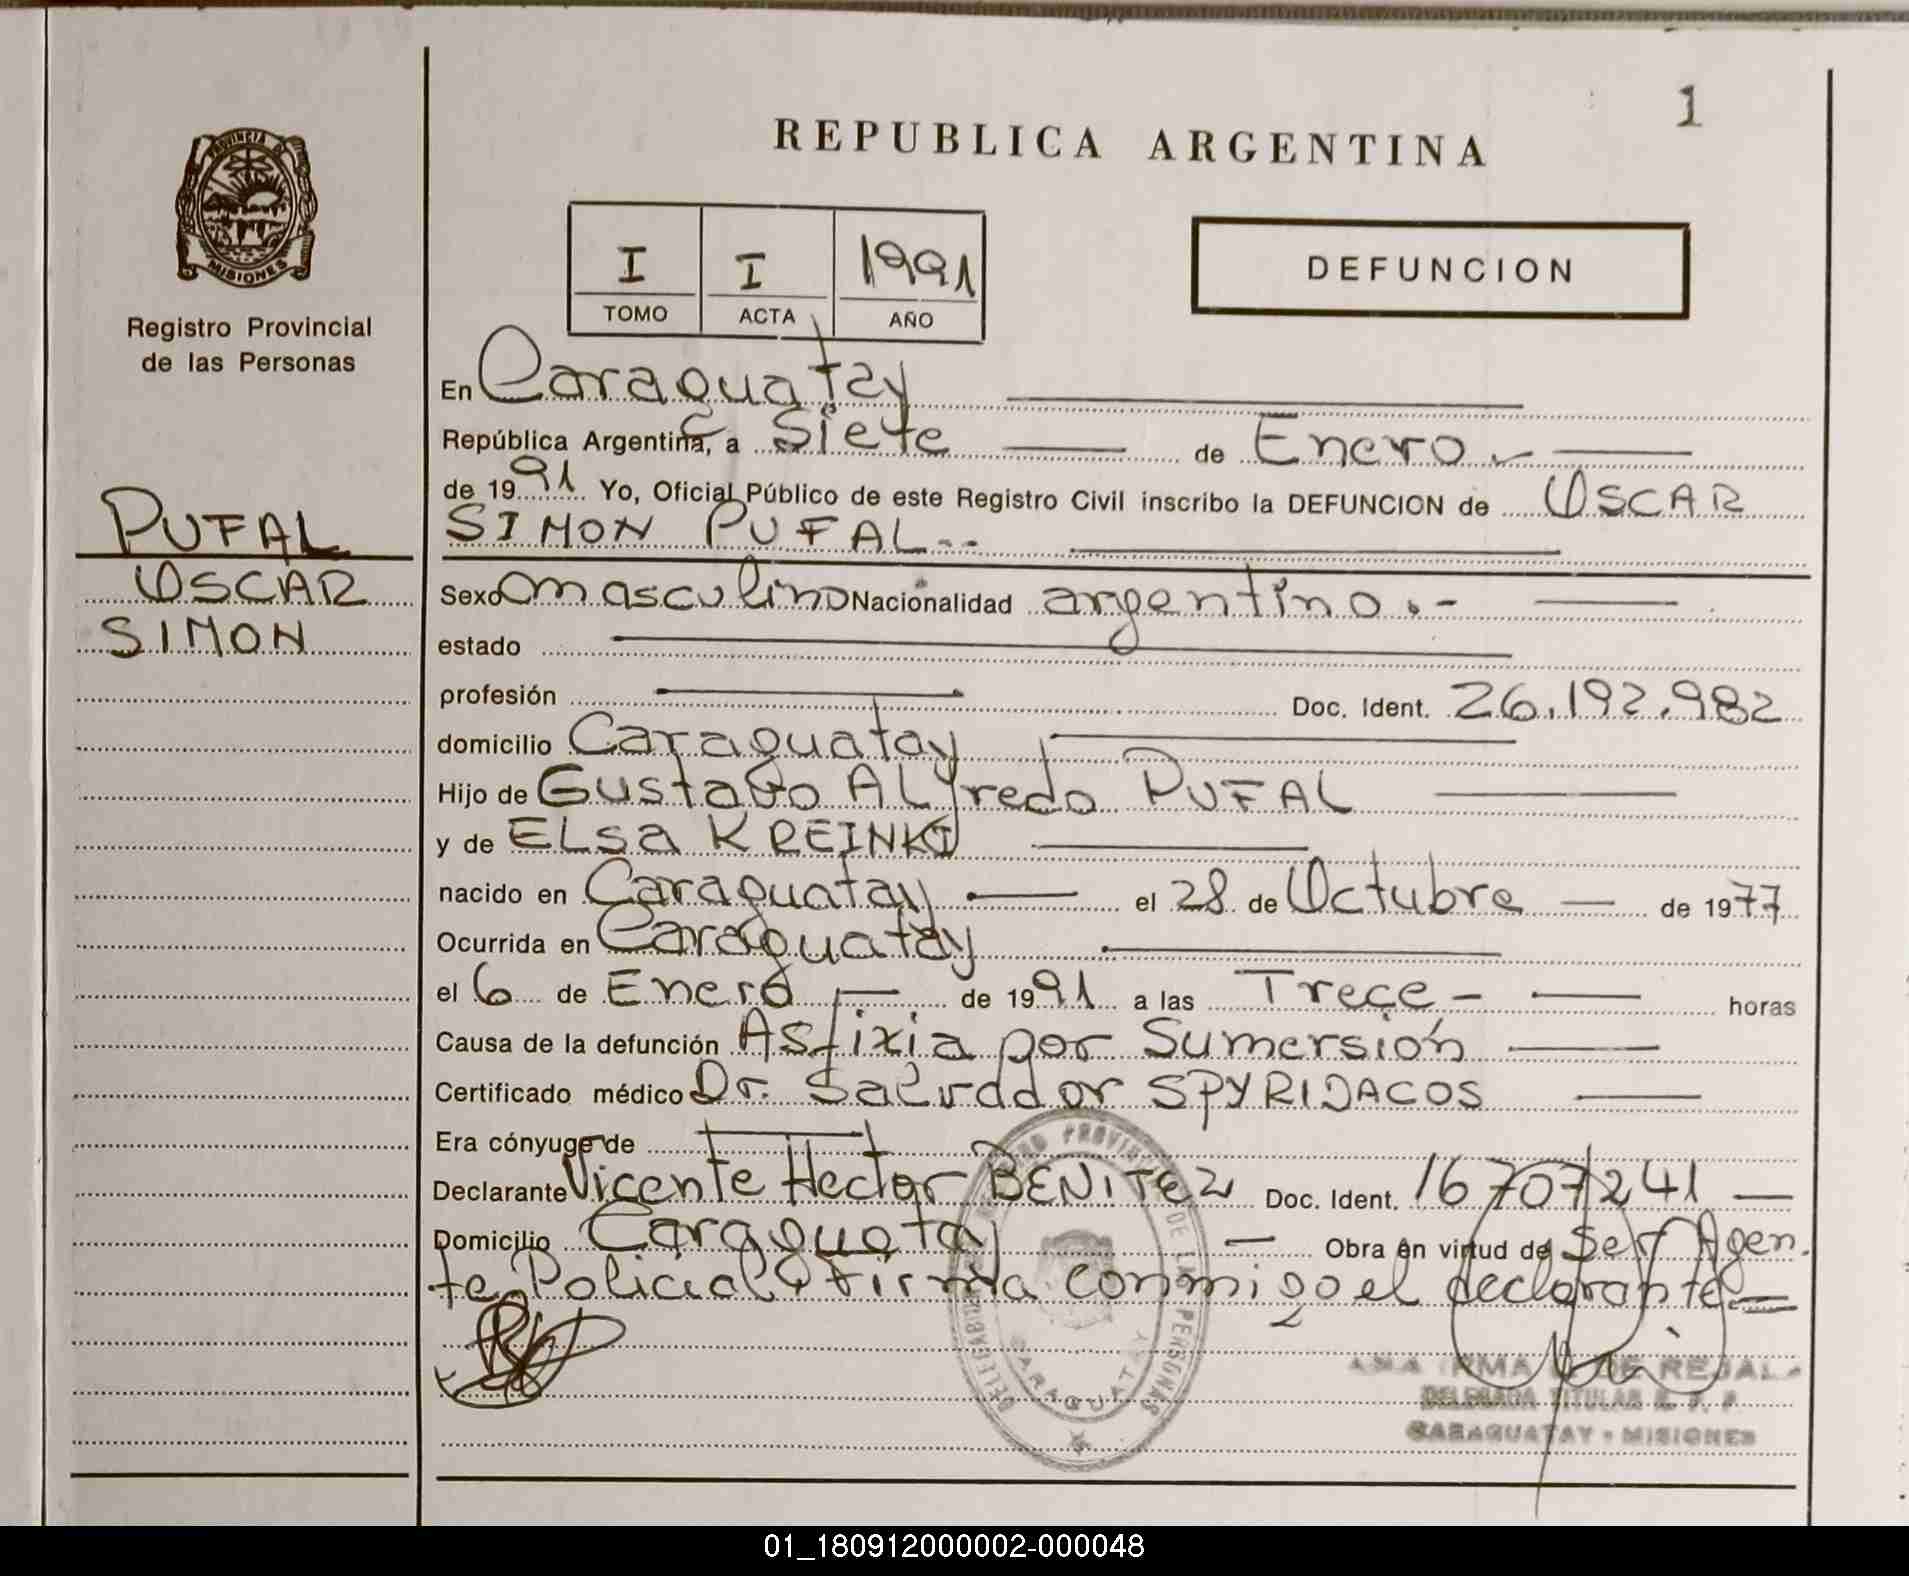 1
REPUBLICA ARGENTINA
PROVINCIA DE
MISIONES
Registro Provincial
de las Personas
I I 1991
TOMO ACTA AÑO
DEFUNCION
En Caraguatay
República Argentina, a Siete de Enero.-
de 1991 Yo, Oficial Público de este Registro Civil inscribo la DEFUNCION de OSCAR
SIMON PUFAL.--
PUFAL
OSCAR
SIMON
Sexo masculino Nacionalidad argentino.-
estado
profesión Doc. Ident. 26.192.982
domicilio Caraguatay
Hijo de Gustavo ALfredo PUFAL
y de ELsa KREINKI
nacido en Caraguatay el 28 de Octubre de 1977
Ocurrida en Caraguatay
el 6 de Enero de 1991 a las Trece - horas
Causa de la defunción Asfixia por Sumersión
Certificado médico Dr. Salvador SPYRIDACOS
Era cónyuge de
Declarante Vicente Hector BENITEZ Doc. Ident. 16707241
Domicilio Caraguatay Obra en virtud de Ser Agen.
te Policial firma conmigo el declarante
REGISTRO PROVINCIAL DE LAS PERSONAS
CARAGUATAY
IRMA DE REJALA
DELEGADA TITULAR R. P. P.
CARAGUATAY - MISIONES
01_180912000002-000048